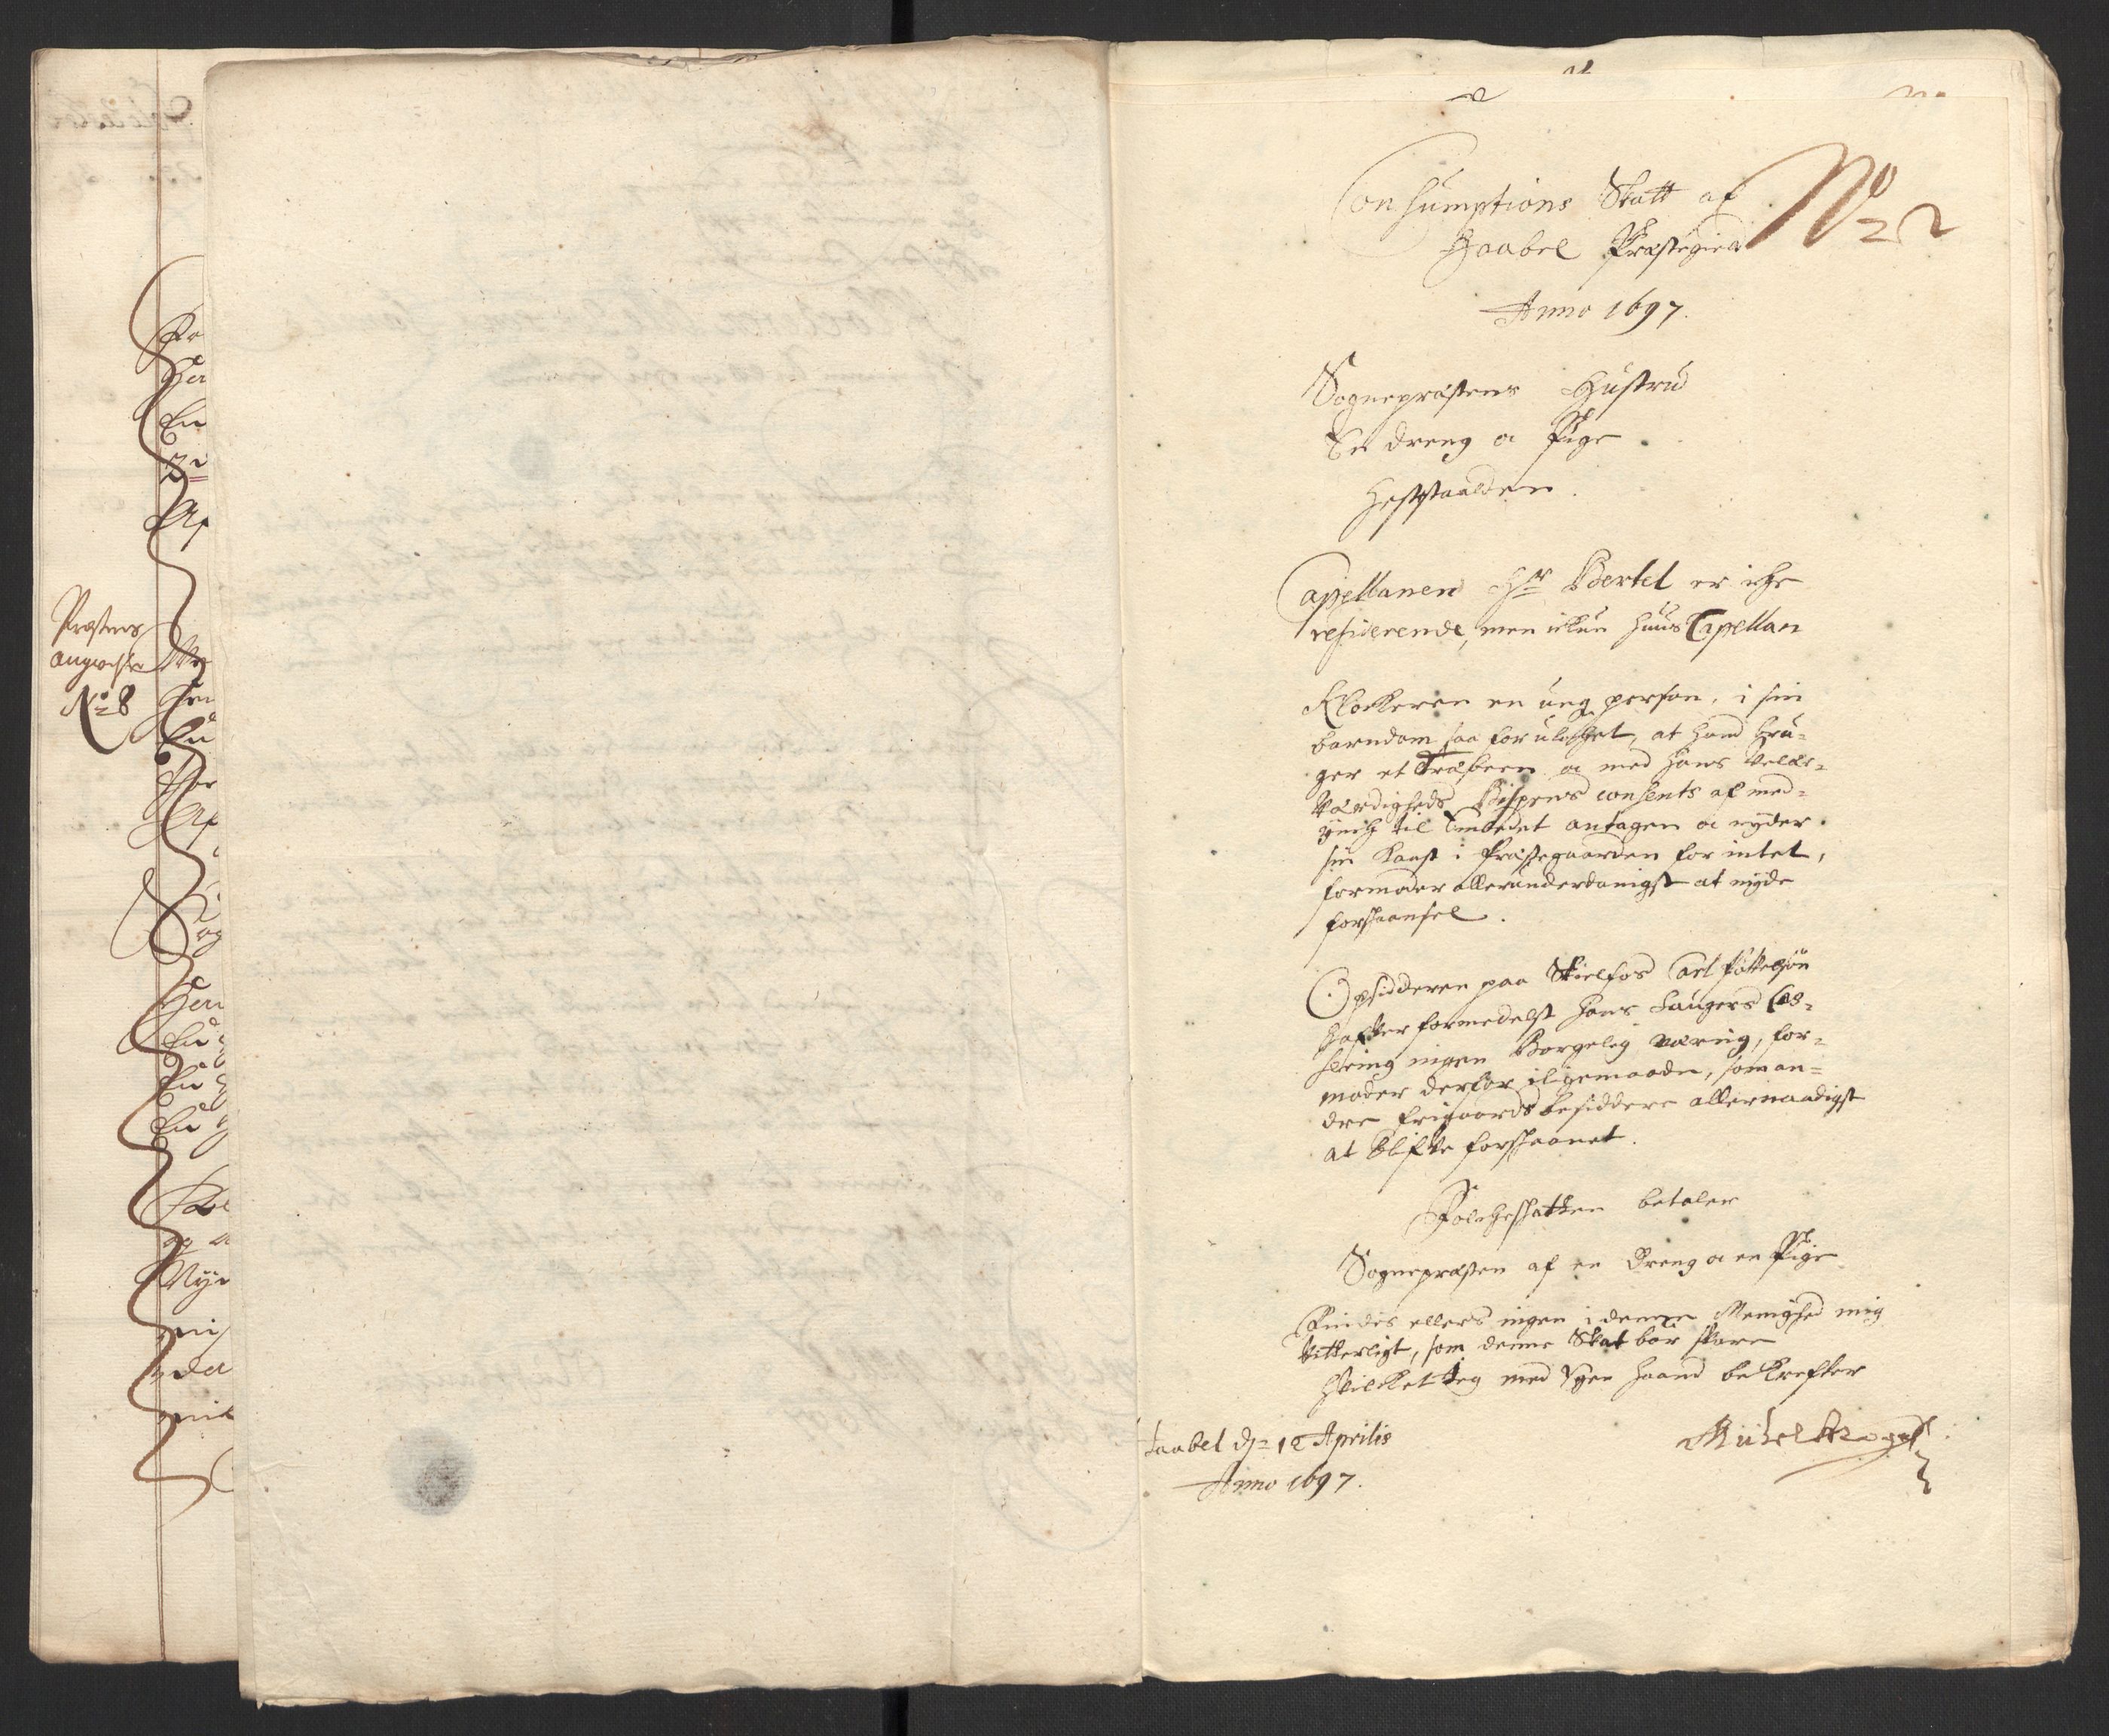 Præstens
angivelse
No 8
Consumptions Skatt af
Haabel Præstegield
No 22
Anno 1697.
Sognepræstens Hustrud
En dreng oc Pige
Hestskaalden.
Capellanen Hr Bertel er iche
residerende, men ickun Huus Capellan
Klockeren en ung person, i sin
barndom saa forulychet, at hand bru-
ger et Træbeen oc med Hans Velær-
værdigheds Bispens consents af med-
ynch til Embedet antagen oc nyder
sin Kaast i Præstegaarden for intet,
formoder allerunderdanigst at nyde
forskaansel.
Opsidderen paa Skielfos Carl
hafver formedelst hans
ingen Borgelig næring, for-
moder derfor iligemaade, som an-
dre frigaards besiddere allernaadigst
at blifve forskaanet.
Folcheskatten betaler
Sognepræsten af en Dreng oc en Pige
Findis ellers ingen i denne Menighed mig
vitterligt, som denne Skat bør svare
Hvilcket Jeg med Egen Haand bekrefter
Haabel dn 12 Aprilis
Anno 1697.